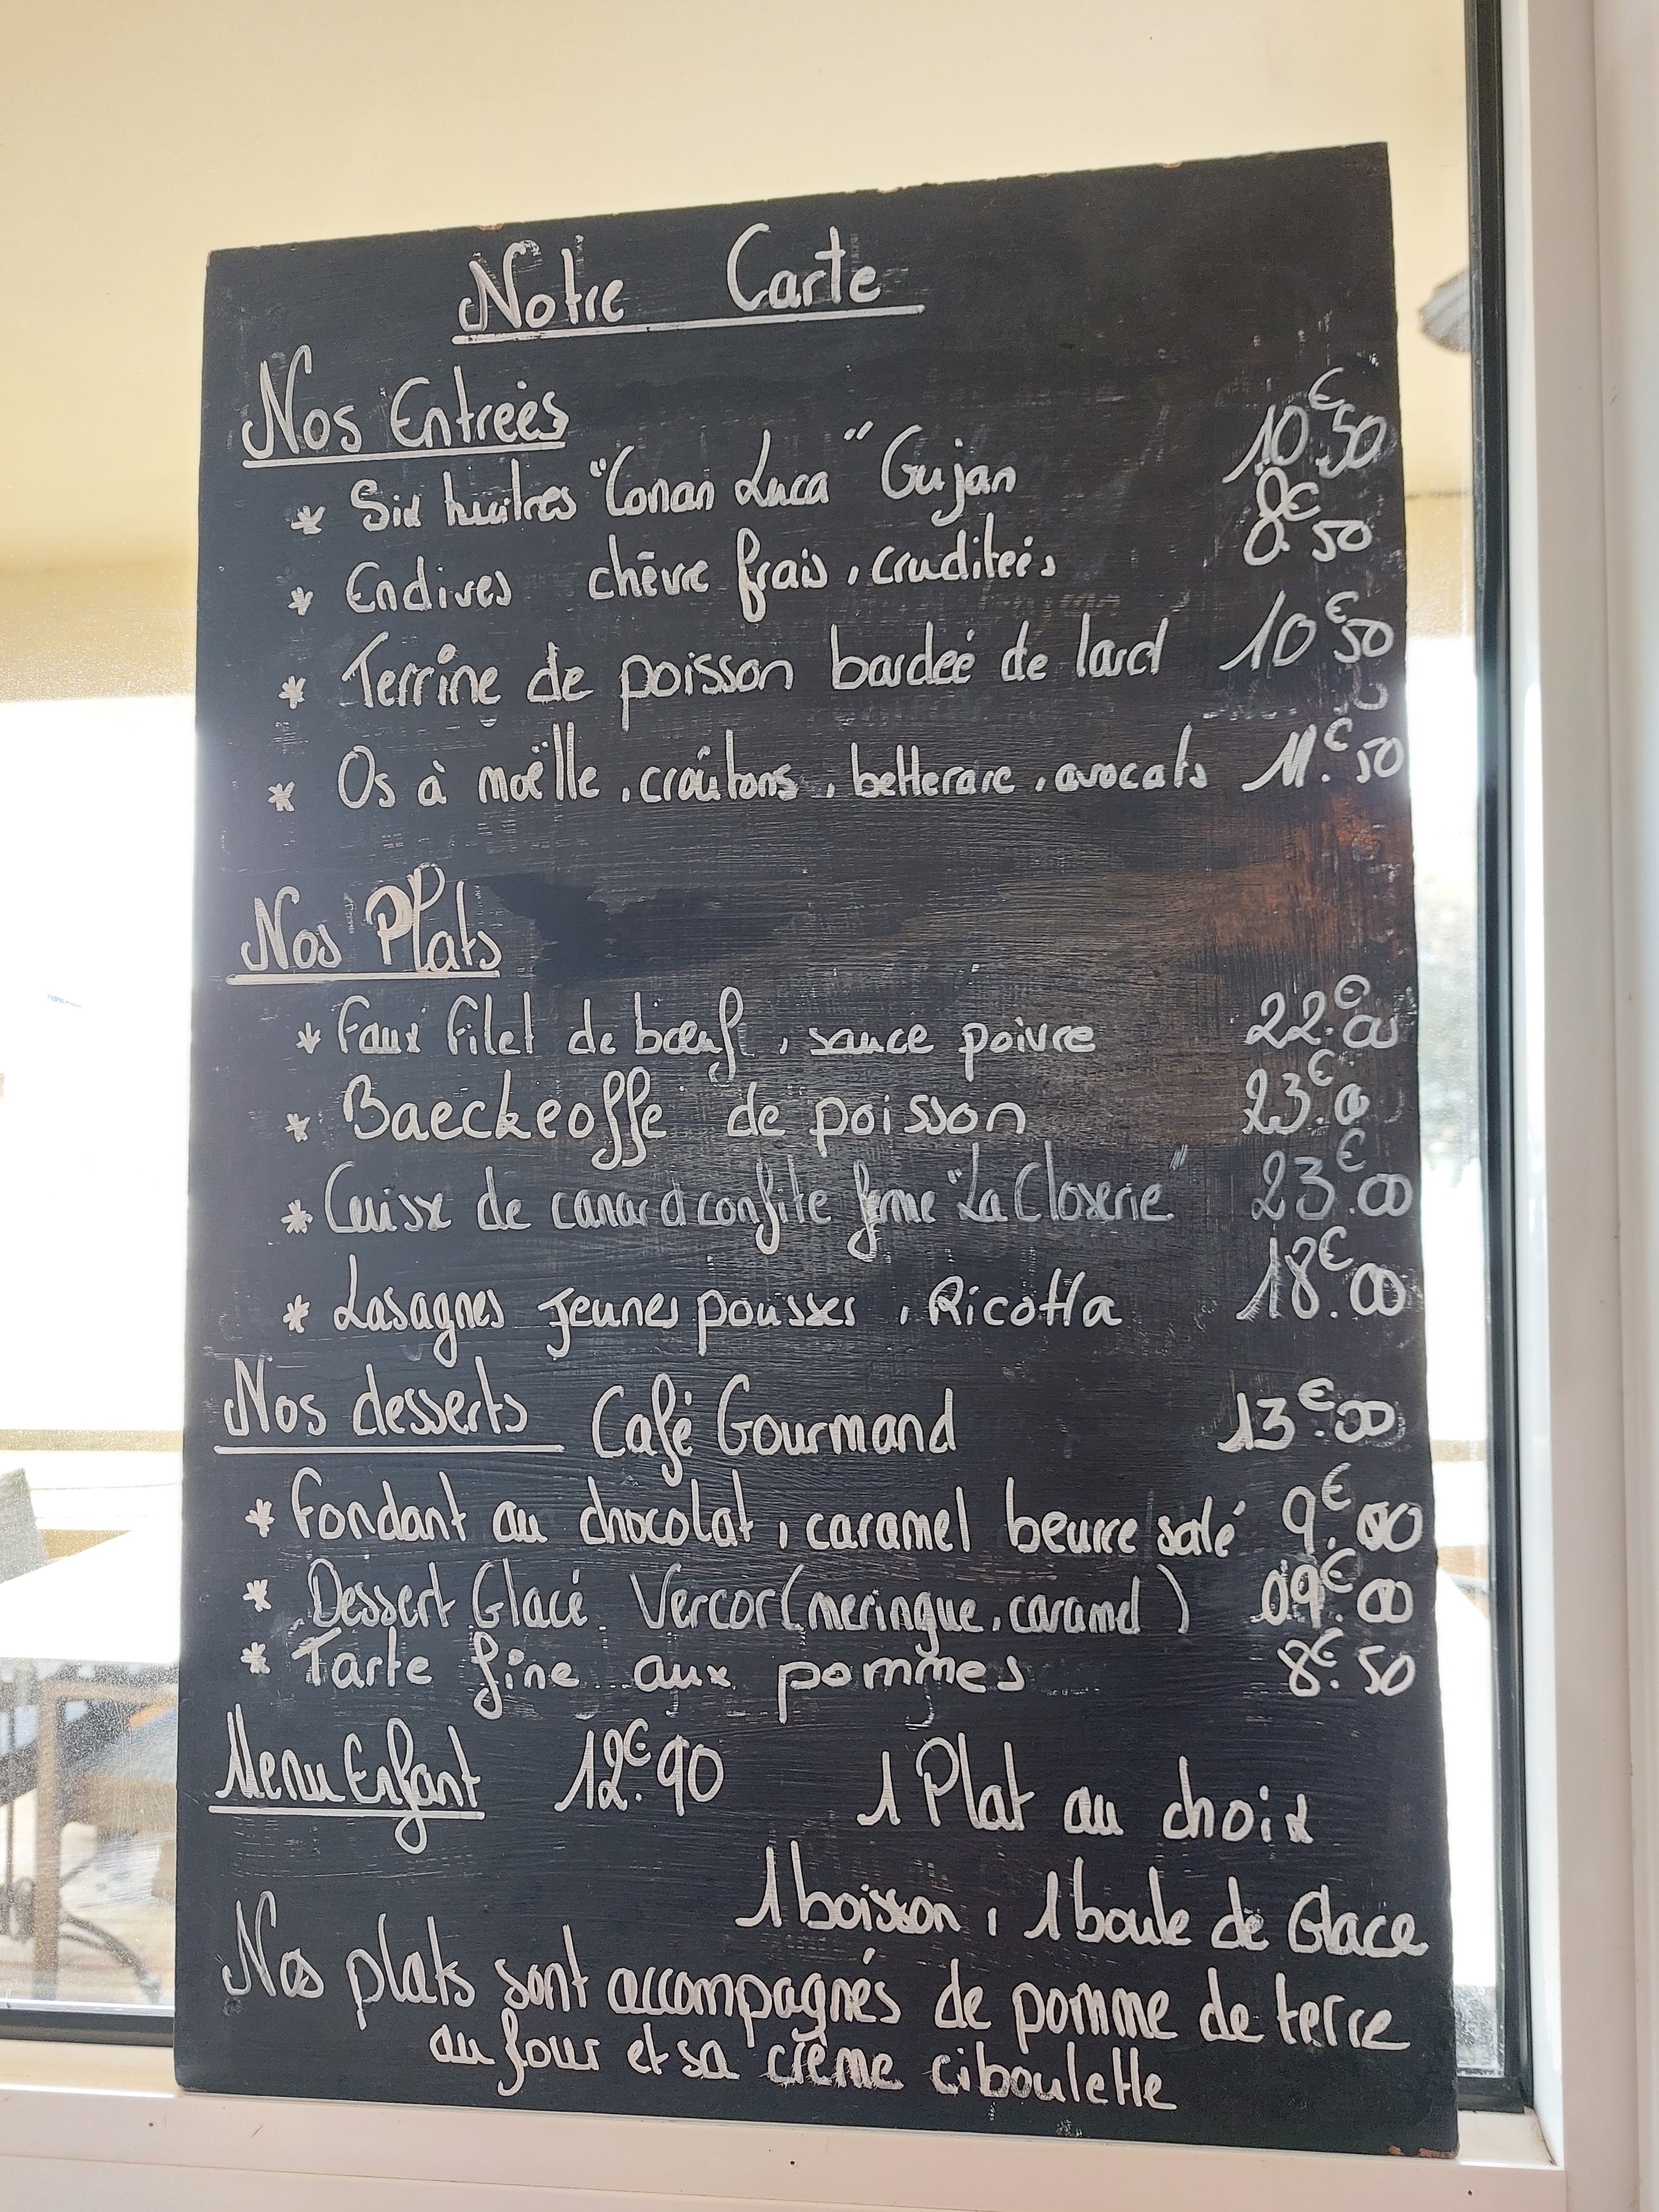 Notre Carte
Nos Entrées
* Six huîtres "Conan Luca" Gujan 10€.50
* Endives chèvre frais, cruditées 8€.50
* Terrine de poisson bardée de lard 10€50
* Os à moëlle, croûtons, betterave, avocats 11€.50
Nos Plats
* Faux filet de bœuf, sauce poivre 22€.00
* Baeckeoffe de poisson 23€.00
* Cuisse de canard confite ferme "La Closerie" 23€.00
* Lasagnes jeunes pousses, Ricotta 18€.00
Nos desserts Café Gourmand 13€.00
* Fondant au chocolat, caramel beurre salé 9€.00
* Dessert Glacé Vercor (meringue, caramel) 09€.00
* Tarte fine aux pommes 8€.50
Menu Enfant 12€.90 1 Plat au choix
1 boisson, 1 boule de Glace
Nos plats sont accompagnés de pomme de terre
au four et sa crème ciboulette